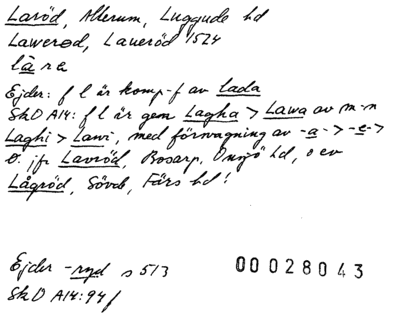 Laröd, Allerum, Luggude hd
Lawerød, Laueröd 1524
làra
Ejder: f l är komp-f av lada
SkO A14: f l är gen Lagha > Lawa av m-n
Laghi > Lawi, med försvagning av -a- > -e- >
0. jfr Lavröd, Bosarp, Onsjö hd, o ev
Lågröd, Sövde, Färs hd!
Ejder -ryd s 513
00028043
SkO A14: 94 f